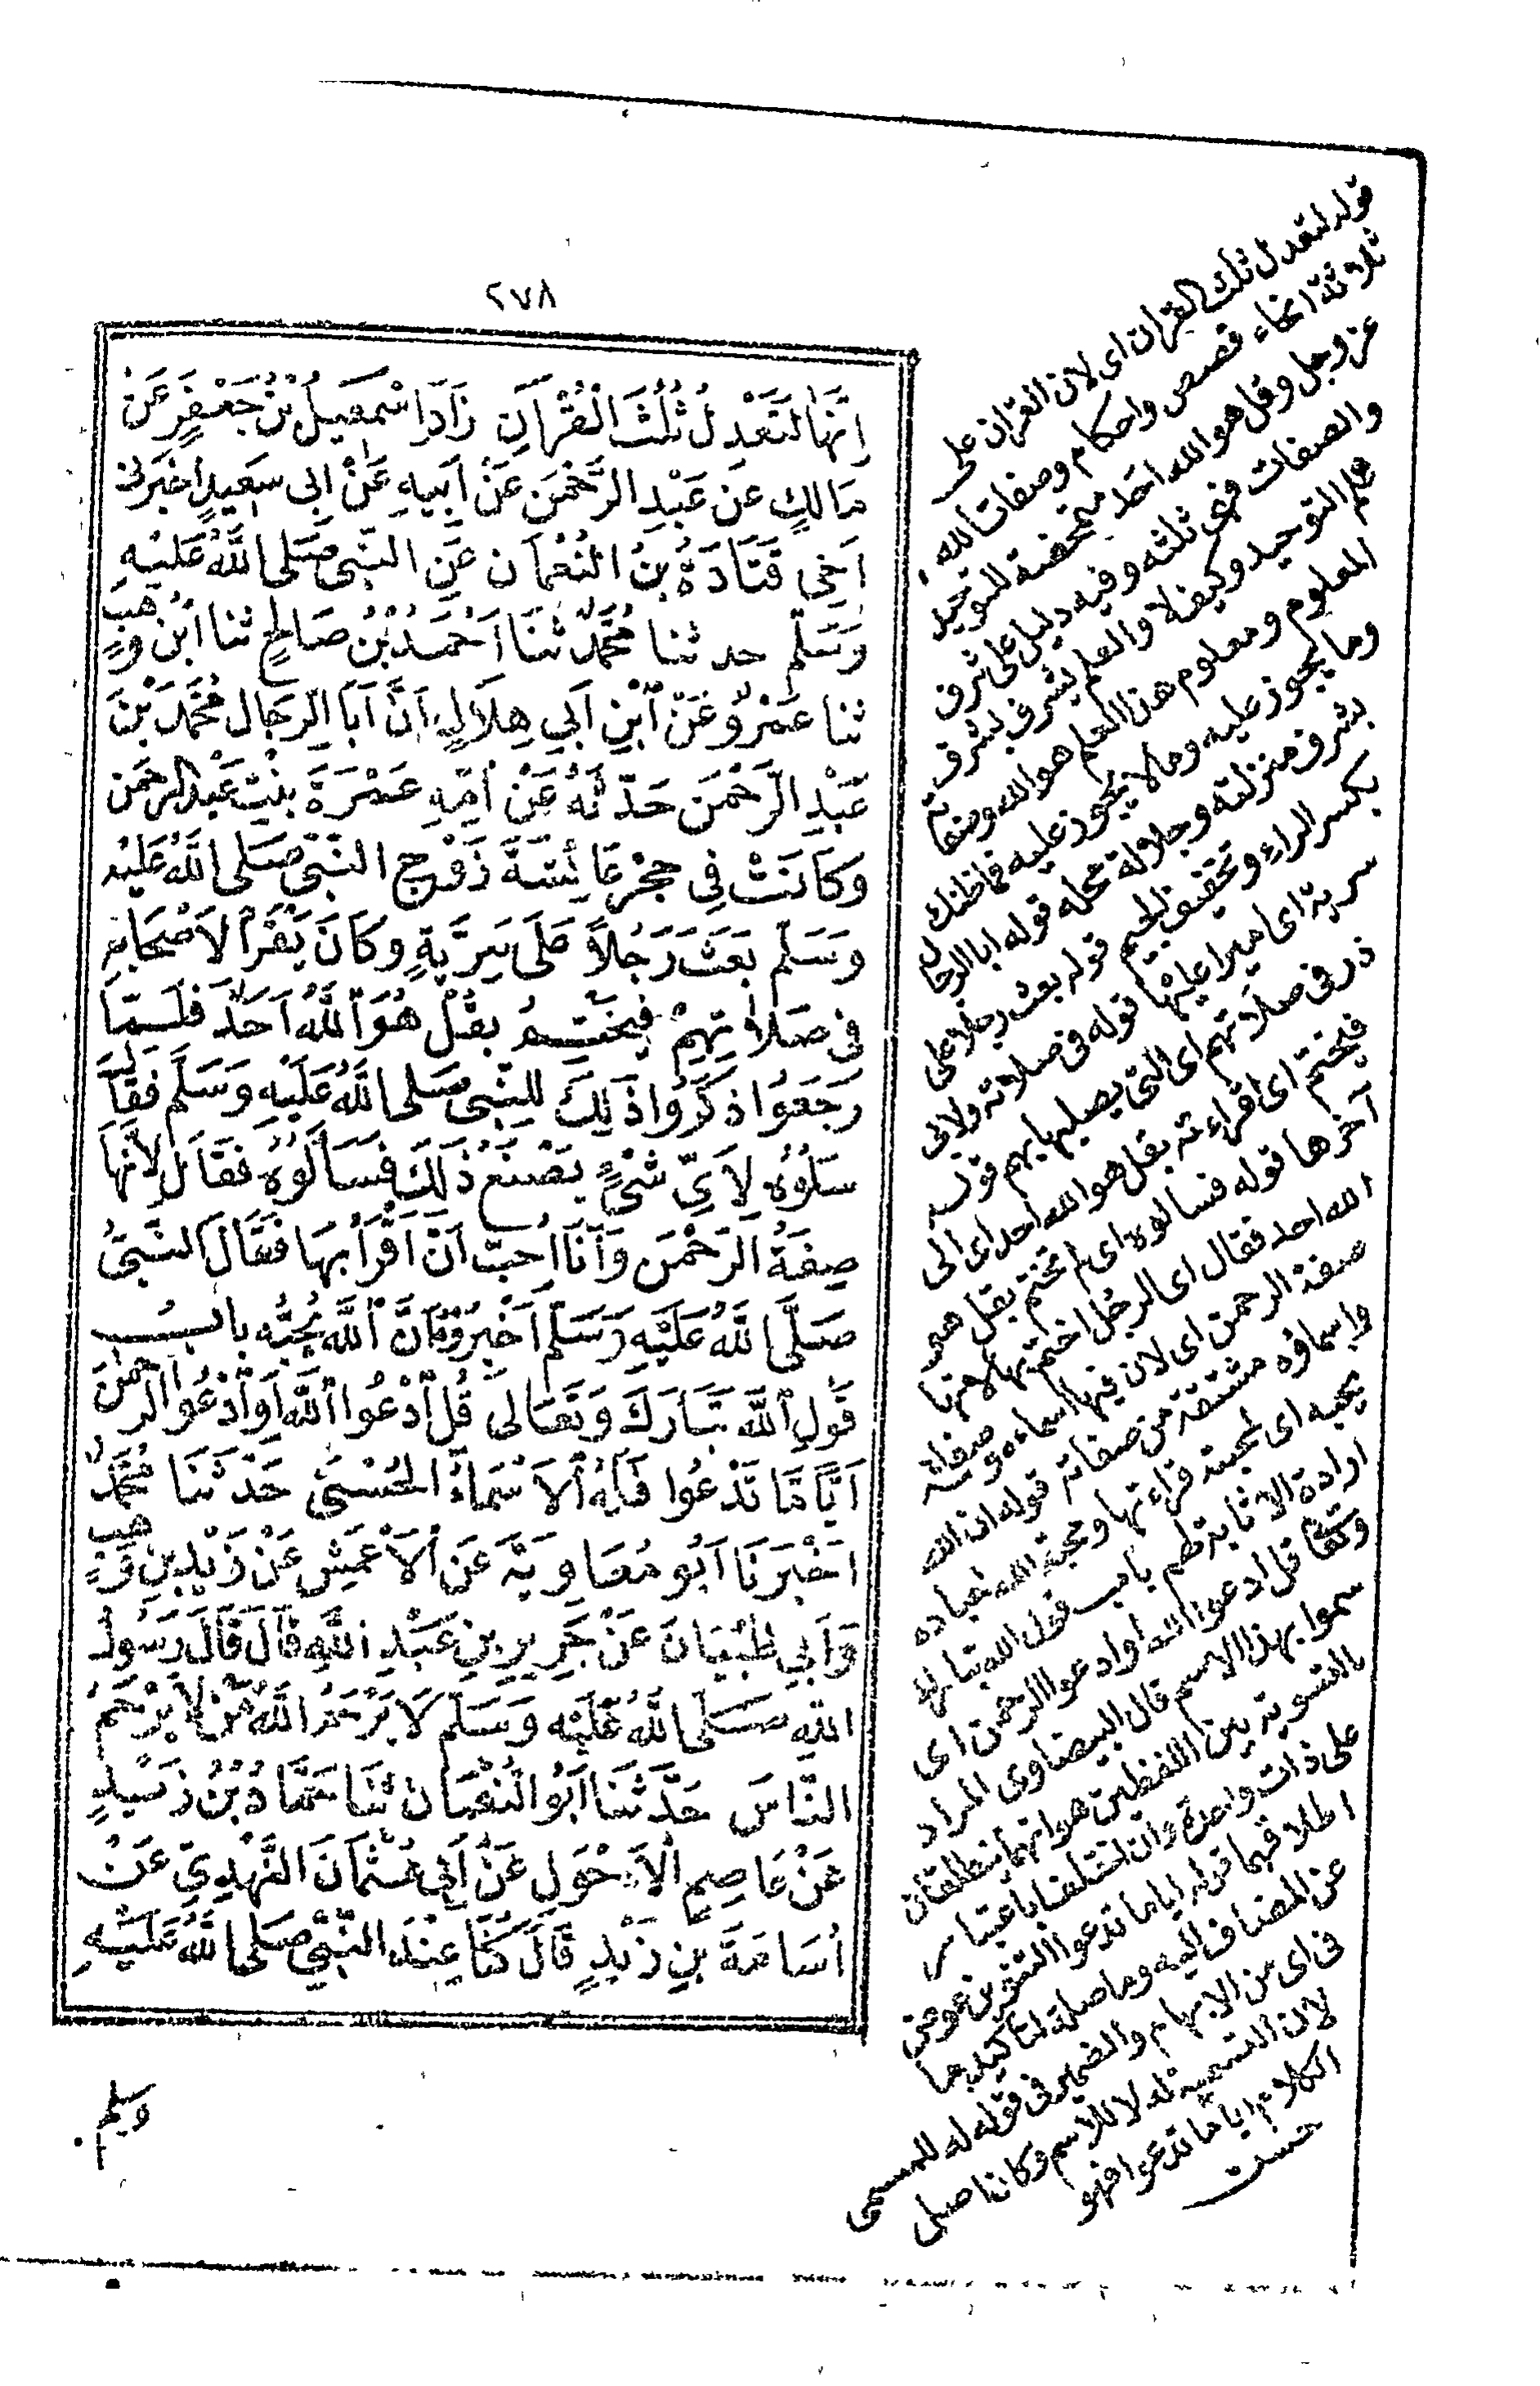 ٢٧٨
اِنَّهَا لَتَعْدِلُ ثُلُثَ الْقُرْآنِ زَادَ اِسْمٰعِيلُ بْنُ جَعْفَرٍ عَنْ
مَالِكٍ عَنْ عَبْدِ الرَّحْمٰنِ عَنْ اَبِيهِ عَنْ اَبِي سَعِيدٍ اَخْبَرَنِي
اَخِي قَتَادَةُ بْنُ النُّعْمَانِ عَنِ النَّبِيِّ صَلَّى اللّٰهُ عَلَيْهِ
وَسَلَّمَ حدثنا مُحَمَّدٌ ثَنَا اَحْمَدُ بْنُ صَالِحٍ ثنا ابْنُ وَهْبٍ
ثنا عَمْرٌو عَنِ ابْنِ اَبِي هِلَالٍ اَنَّ اَبَا الرِّجَالِ مُحَمَّدَ بْنَ
عَبْدِ الرَّحْمٰنِ حَدَّثَهُ عَنْ اُمِّهِ عَمْرَةَ بِنْتِ عَبْدِ الرَّحْمٰنِ
وَكَانَتْ فِي حِجْرِ عَائِشَةَ زَوْجِ النَّبِيِّ صَلَّى اللّٰهُ عَلَيْهِ
وَسَلَّمَ بَعَثَ رَجُلًا عَلَى سَرِيَّةٍ وَكَانَ يَقْرَأُ لِاَصْحَابِهِ
فِي صَلَاتِهِمْ فَيَخْتِمُ بِقُلْ هُوَ اللّٰهُ اَحَدٌ فَلَمَّا
رَجَعُوا ذَكَرُوا ذٰلِكَ لِلنَّبِيِّ صَلَّى اللّٰهُ عَلَيْهِ وَسَلَّمَ فَقَالَ
سَلُوهُ لِاَيِّ شَيْءٍ يَصْنَعُ ذٰلِكَ فَسَاَلُوهُ فَقَالَ لِاَنَّهَا
صِفَةُ الرَّحْمٰنِ وَاَنَا اُحِبُّ اَنْ اَقْرَاَ بِهَا فَقَالَ النَّبِيُّ
صَلَّى اللّٰهُ عَلَيْهِ وَسَلَّمَ اَخْبِرُوهُ اَنَّ اللّٰهَ يُحِبُّهُ بابُ
قَوْلِ اللّٰهِ تَبَارَكَ وَتَعَالَى قُلِ ادْعُوا اللّٰهَ اَوِ ادْعُوا الرَّحْمٰنَ
اَيًّا مَّا تَدْعُوا فَلَهُ الْاَسْمَاءُ الْحُسْنٰى حَدَّثَنَا مُحَمَّدٌ
اَخْبَرَنَا اَبُو مُعَاوِيَةَ عَنِ الْاَعْمَشِ عَنْ زَيْدِ بْنِ وَهْبٍ
وَاَبِي ظَبْيَانَ عَنْ جَرِيرِ بْنِ عَبْدِ اللّٰهِ قَالَ قَالَ رَسُولُ
اللّٰهِ صَلَّى اللّٰهُ عَلَيْهِ وَسَلَّمَ لَا يَرْحَمُ اللّٰهُ مَنْ لَا يَرْحَمُ
النَّاسَ حَدَّثَنَا اَبُو النُّعْمَانِ ثَنَا حَمَّادُ بْنُ زَيْدٍ
عَنْ عَاصِمٍ الْاَحْوَلِ عَنْ اَبِي عُثْمَانَ النَّهْدِيِّ عَنْ
اُسَامَةَ بْنِ زَيْدٍ قَالَ كُنَّا عِنْدَ النَّبِيِّ صَلَّى اللّٰهُ عَلَيْهِ
وسلم
قوله لتعدل ثلث القرآن اى لان القرآن على
ثلاثة انحاء قصص واحكام وصفات لله
عز وجل وقل هو الله احد متمحضة للتوحيد
والصفات فهى ثلثه وفيه دليل على شرف
علم التوحيد وكيف لا والعلم يشرف بشرف
المعلوم ومعلوم هذا العلم هو الله وصفاته
وما يجوز عليه وما لا يجوز عليه فما ظنك
بشرف منزلته وجلالة محله قوله ابا الرجال
بكسر الراء وتخفيف الجيم قوله بعث رجلا على
سرية اى اميرا عليها قوله فى صلاته ولابى
ذر فى صلاتهم اى التى يصليها بهم قوله
فيختم اى قراءته بقل هو الله احد اى الى
آخرها قوله فسالوه اى لم تختم بقل هو
الله احد فقال اى الرجل اختم بها لانها
صفة الرحمن اى لان فيها اسماءه وصفاته
واسماؤه مشتقة من صفاته قوله ان الله
يحبه اى لمحبته قراءتها ومحبة الله لعباده
ارادة الاثابة لهم باب قول الله تبارك
وتعالى قل ادعوا الله او ادعوا الرحمن اى
سموا بهذا الاسم قال البيضاوى المراد
بالتسوية بين اللفظين هو انهما يطلقان
على ذات واحدة وان اختلف باعتبار
اطلاقهما قوله ايا ما تدعوا التنوين عوض
عن المضاف اليه وما صلة لتاكيد ما
فى اى من الابهام والضمير فى قوله له للمسمى
لان التسمية له لا للاسم وكان اصل
الكلام ايا ما تدعوا فهو
حسن